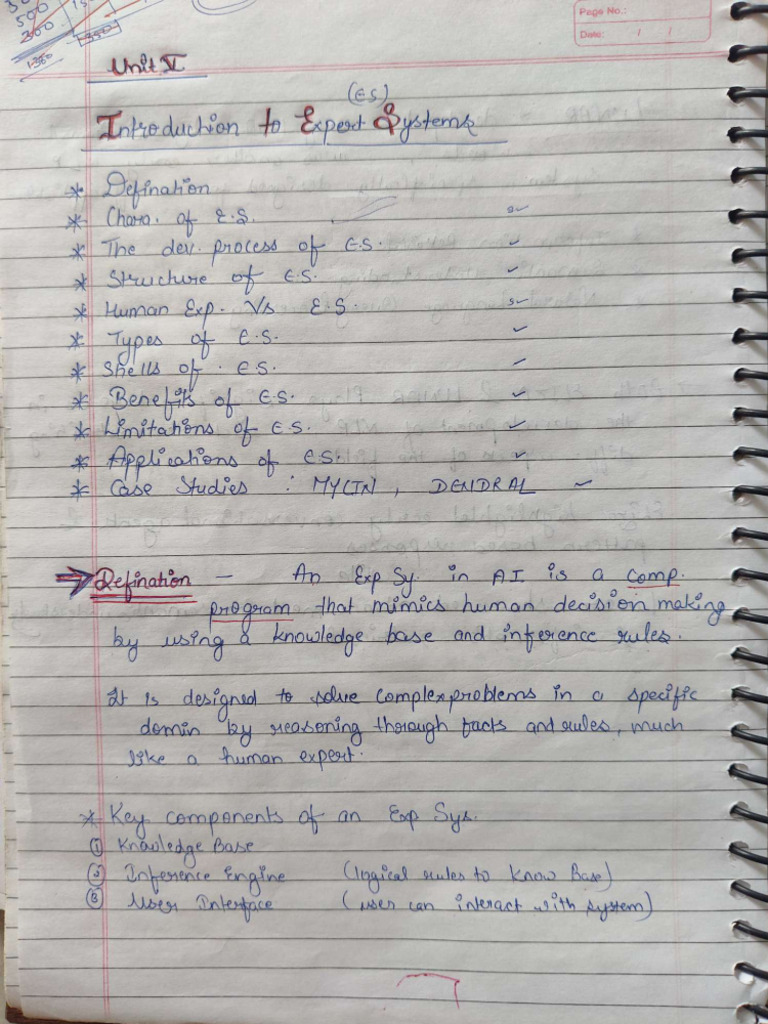 500
300
1300
350
Page No.:
Date: / /
Unit V
(ES)
Introduction to Expert Systems
* Defination
* Chara. of E.S.
* The dev. process of E.S.
* Structure of E.S.
* Human Exp. Vs E.S.
* Types of E.S.
* Shells of E.S.
* Benefits of E.S.
* Limitations of E.S.
* Applications of E.S.
* Case Studies : MYCIN, DENDRAL
Defination - An Exp Sy. in AI is a comp.
program that mimics human decision making
by using a knowledge base and inference rules.
It is designed to solve complex problems in a specific
domin by reasoning thorough facts and rules, much
like a human expert.
* Key components of an Exp Sys.
① Knowledge Base
② Inference Engine (logical rules to Know Base)
③ User Interface (user can interact with system)